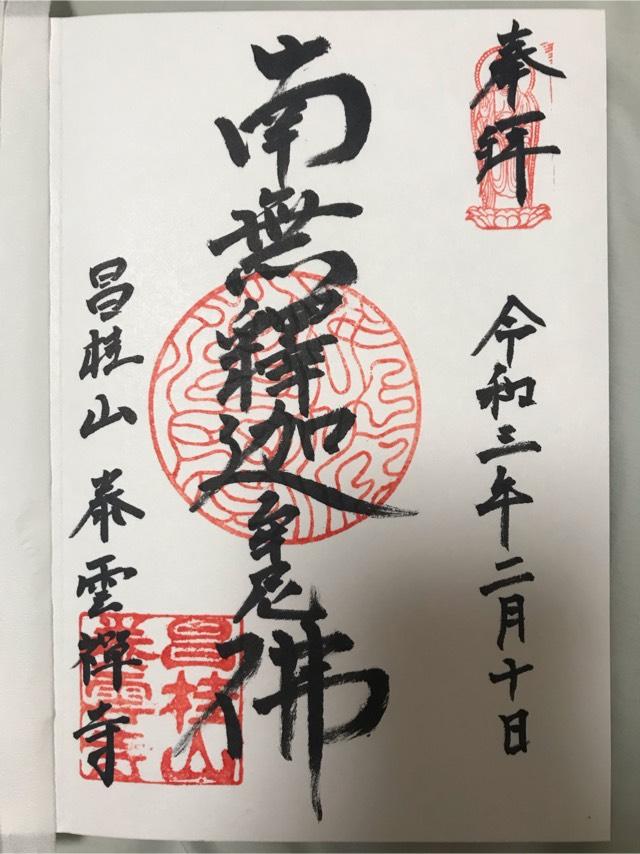 奉拝
令和三年二月十日
南無釋迦牟尼佛
昌桂山 泰雲禅寺
昌桂山
泰雲寺